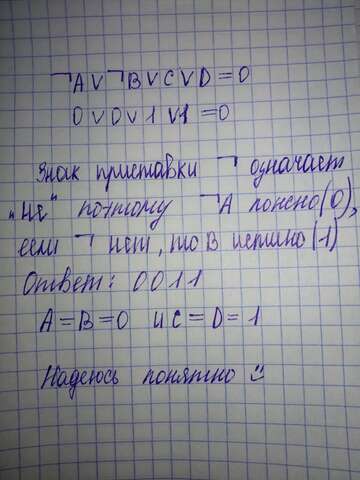 ¬A∨¬B∨C∨D=0
0∨0∨1∨1=0
Знак приставки ¬ означает
"Не" поэтому ¬A ложно(0),
если ¬ нет, то B истино(1)
Ответ: 0011
A=B=0 и C=D=1
Надеюсь понятно ☺